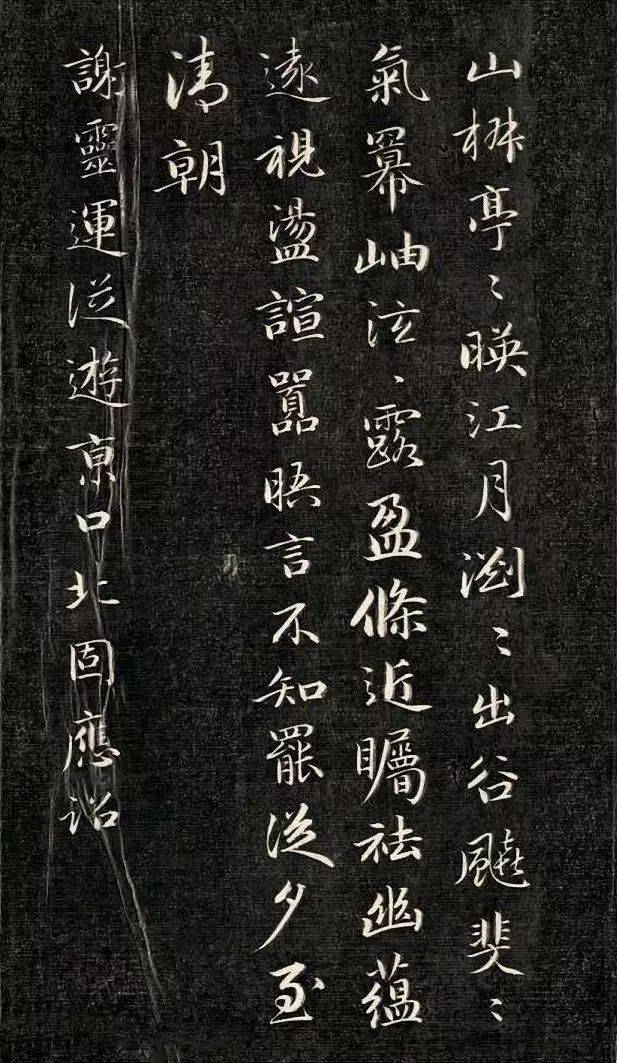 山椒亭〻暎江月瀏〻出谷飈斐〻
氣冪岫泫〻露盈條近矚祛幽蘊
遠視盪諠囂晤言不知罷從夕至
清朝
謝靈運從遊京口北固應詔